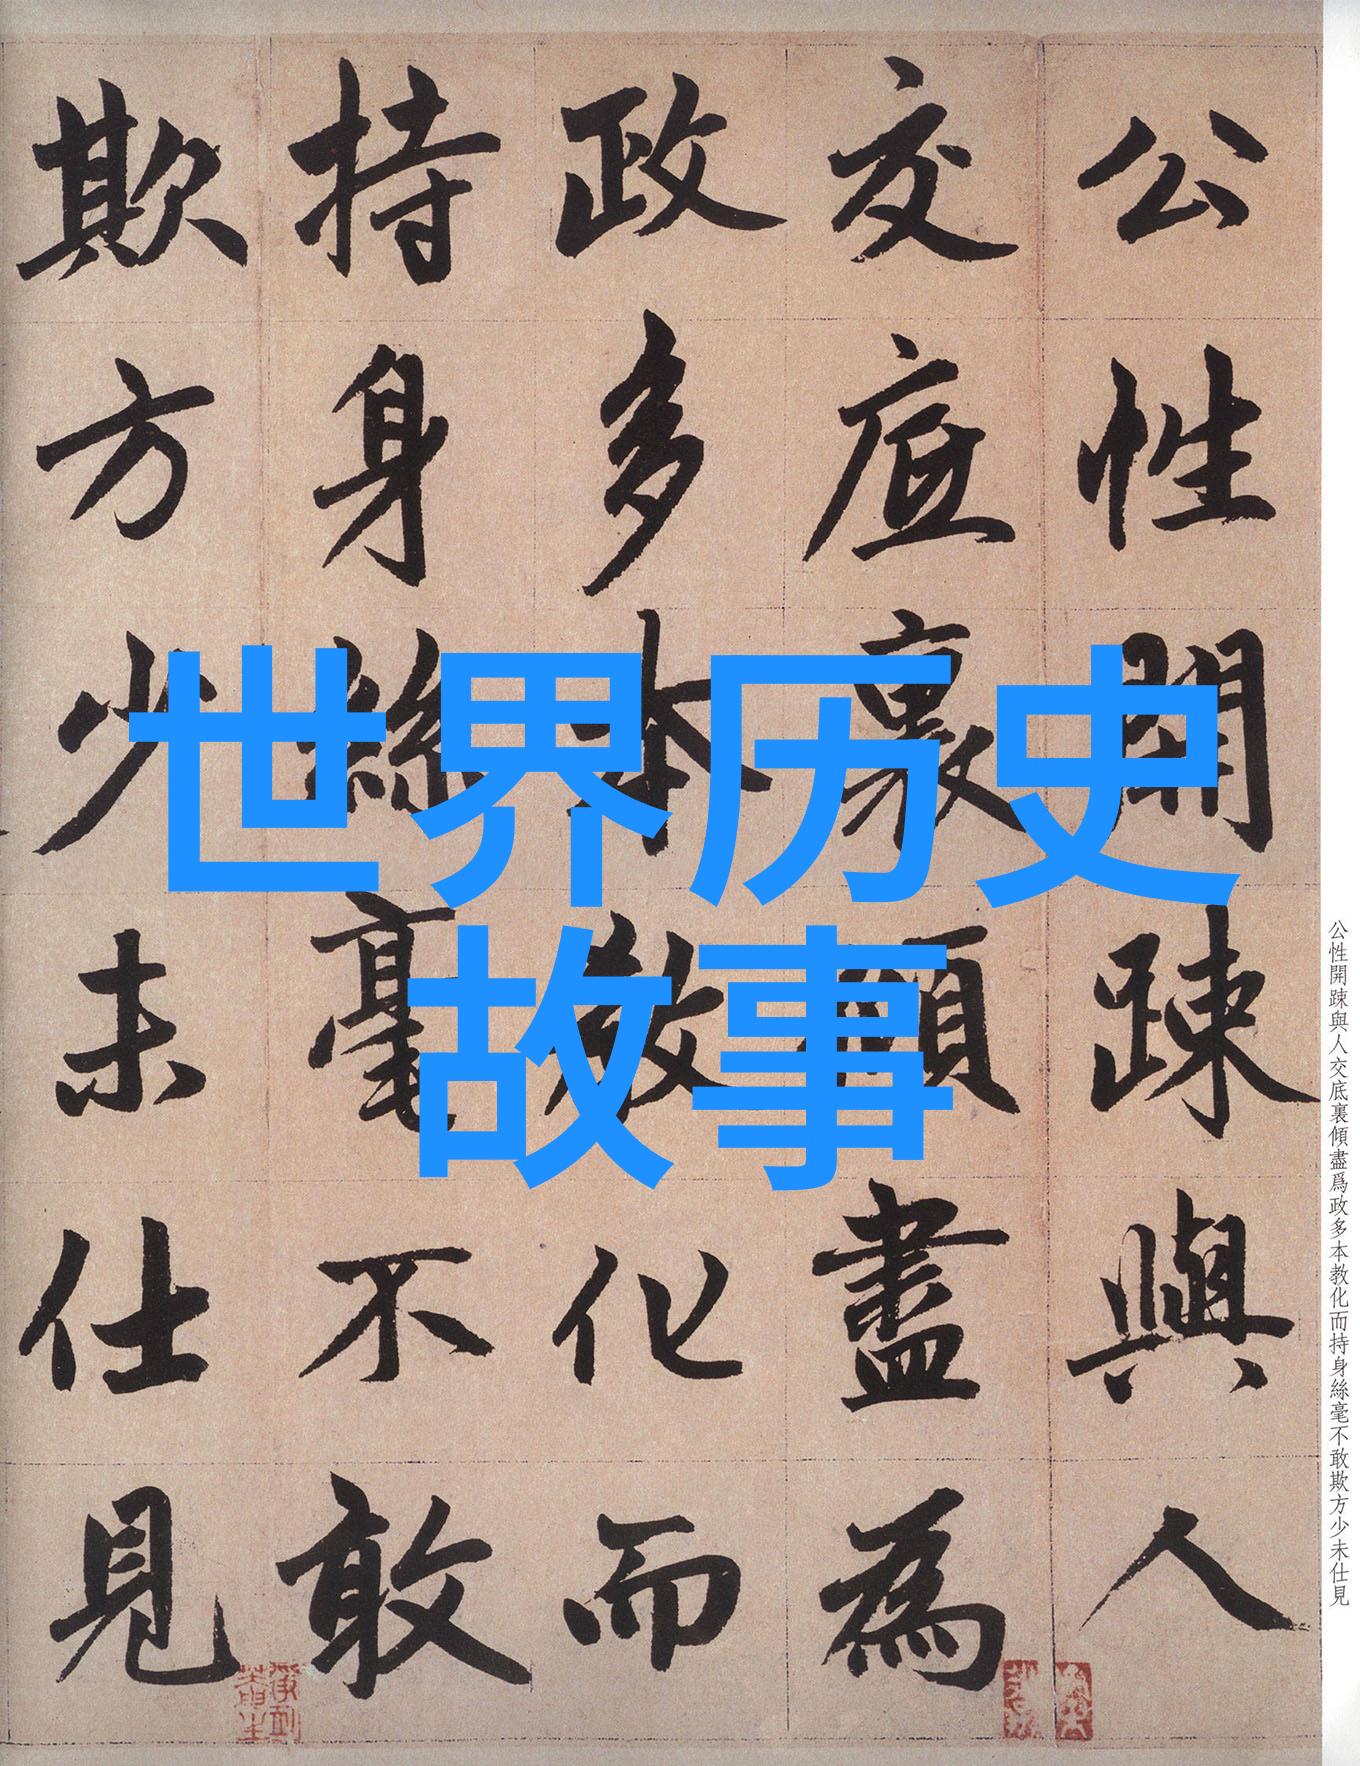 世界历史
故事
公性開踈與人
交底裏傾盡為
政多本教化而
持身絲毫不敢
欺方少未仕見
公性開踈與人交底裏傾盡爲政多本教化而持身絲毫不敢欺方少未仕見